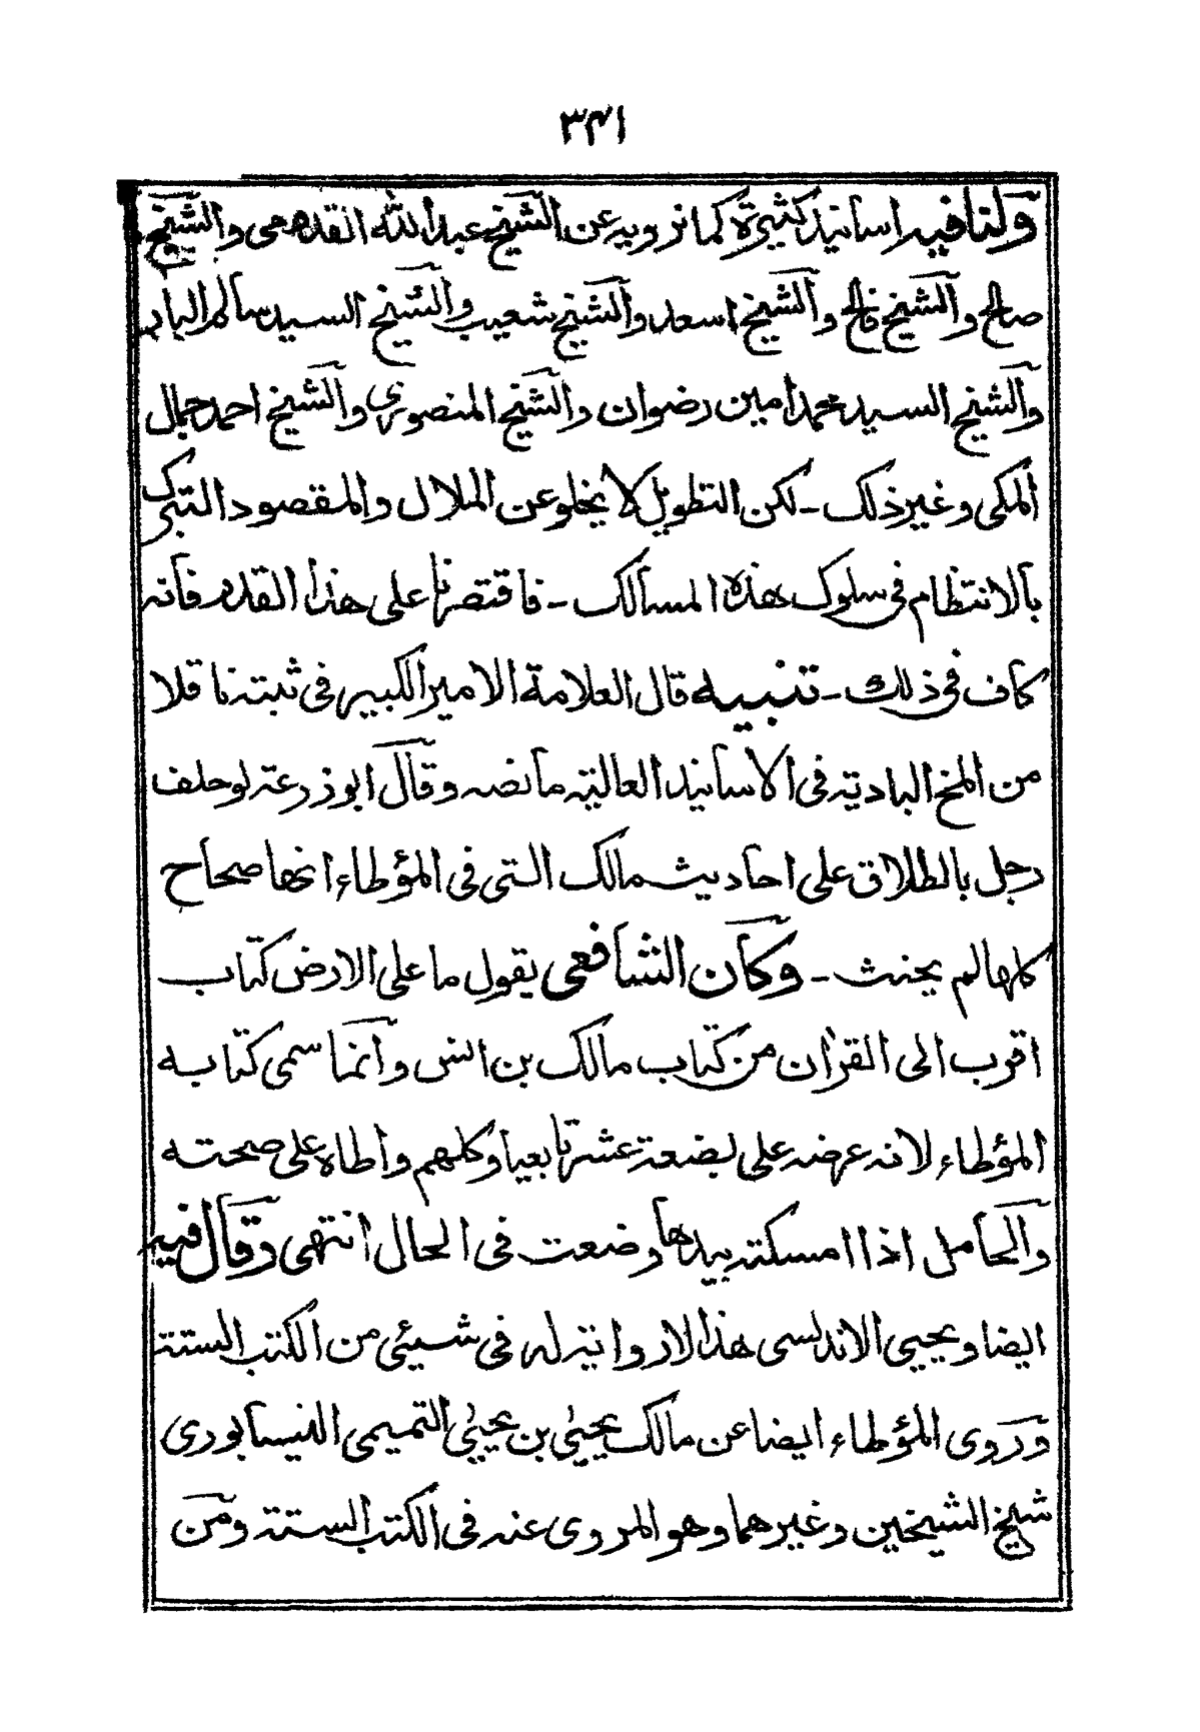 ٣٤١
ولنا فيه اسانيد كثيرة كما نرويه عن الشيخ عبد الله القدومى والشيخ
صالح والشيخ فالح والشيخ اسعد والشيخ شعيب والشيخ السيد سالم البار
والشيخ السيد محمد امين رضوان والشيخ المنصورى والشيخ احمد جمال
المكى وغير ذلك - لكن التطويل لا يخلو عن الملال والمقصود التبرك
بالانتظام فى سلوك هذه المسالك - فاقتصرنا على هذا القدر فانه
كاف فى ذلك - تنبيه قال العلامة الامير الكبير فى ثبته ناقلا
من المنح البادية فى الاسانيد العالية ما نصه وقال ابو زرعة لو حلف
رجل بالطلاق على احاديث مالك التى فى المؤطاء انها صحاح
كلها لم يحنث - وكان الشافعى يقول ما على الارض كتاب
اقرب الى القران من كتاب مالك بن انس وانما سمى كتابه
المؤطاء لانه عرضه على بضعة عشر تابعيا وكلهم واطاه على صحته
والحامل اذا امسكته بيدها وضعت فى الحال انتهى وقال فيه
ايضا ويحيى الاندلسى هذا لا رواية له فى شيئى من الكتب الستة
وروى المؤطاء ايضا عن مالك يحيى بن يحيى التميمى النيسابورى
شيخ الشيخين وغيرهما وهو المروى عنه فى الكتب الستة ومن